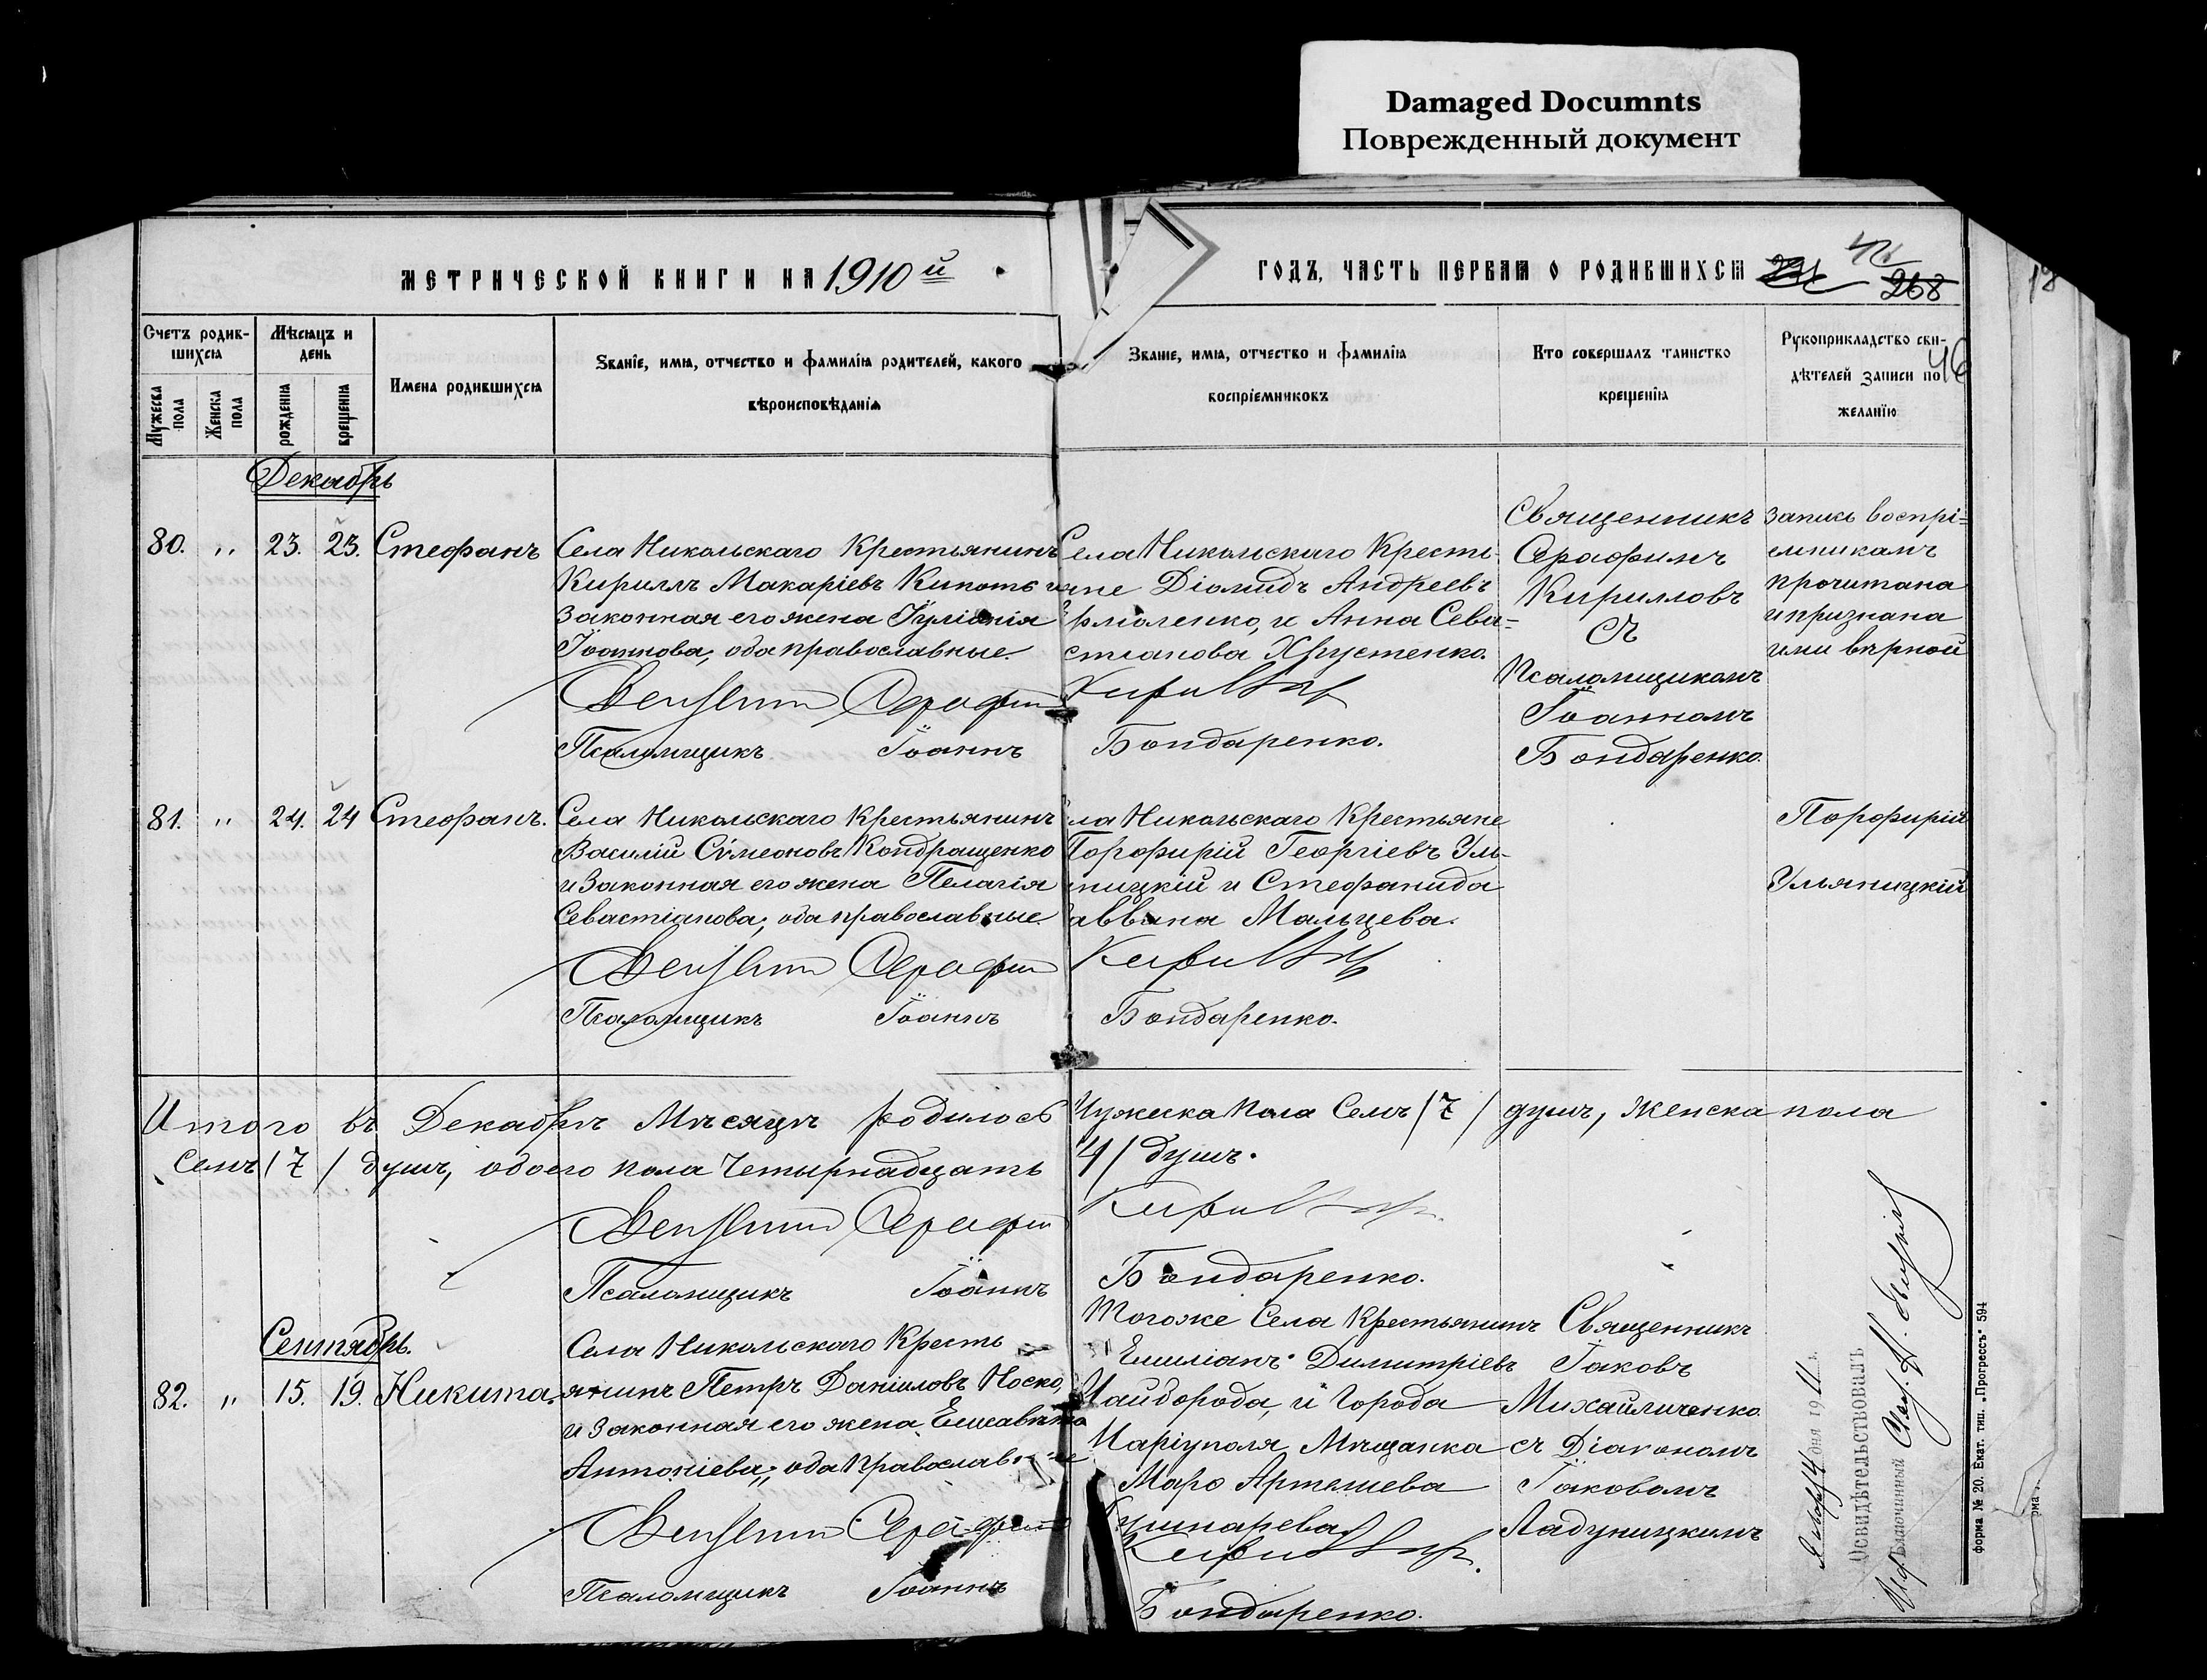 Damaged Documnts
Поврежденный документ
МЕТРИЧЕСКОЙ КНИГИ НА 1910й
ГОДЪ, ЧАСТЬ ПЕРВАЯ О РОДИВШИХСЯ
268
Счетъ родив-
шихся
Мѣсяцъ и
день
Мужеска
пола
Женска
пола
рожденія
крещенія
Имена родившихся
Званіе, имя, отчество и фамилія родителей, какого
вѣроисповѣданія
Званіе, имя, отчество и фамилія
воспріемниковъ
Кто совершалъ таинство
крещенія
Рукоприкладство сви-
дѣтелей записи по
желанію
46
Декабрь
80. " 23. 23. Стефанъ
Села Никольскаго Крестьянинъ
Кириллъ Макаріевъ Кипоть и
законная его жена Іуліанія
Іоаннова, оба православные.
Серафим
Псаломщикъ Іоаннъ
Села Никольскаго Кресть-
яне Діомидъ Андреевъ
и Анна Сева-
стіанова Хрустенко.
Бондаренко.
Священникъ
Серафимъ
Кирилловъ
съ
Псаломщикомъ
Іоанномъ
Бондаренко.
Запись воспрі-
емникамъ
прочитана
и признана
ими вѣрной
81. " 24. 24 Стефанъ.
Села Никольскаго Крестьянинъ
Василій Сѵмеоновъ Кондращенко
и законная его жена Пелагія
Севастіанова, оба православные.
Серафим
Псаломщикъ Іоаннъ
ла Никольскаго Крестьяне
Порфирій Георгіевъ Уль-
ницкій и Стефанида
аввина Мальцева.
Бондаренко.
Порфирій
Ульяницкій
Итого въ Декабрѣ Мѣсяцѣ родилось Мужеска пола Семь /7/ душъ, Женска пола
Семь /7/ душъ, обоего пола Четырнадцать
4/ душъ.
Серафим
Псаломщикъ Іоаннъ
Бондаренко.
Сентябрь.
82. " 15. 19. Никита.
Села Никольскаго Кресть
янинъ Петръ Даніиловъ Носко,
и законная его жена Елисавета
Антоніева, оба православные
Серафим
Псаломщикъ Іоаннъ
Тогоже Села Крестьянинъ
Емиліанъ Димитріевъ
Чайборода, и Города
Маріуполя Мѣщанка
Артемиева
Бондаренко.
Священникъ
Іаковъ
Михайличенко
съ Діакономъ
Іаковомъ
Ладуницкимъ
14 дня 1911 г.
Освидѣтельствовалъ
Форма № 20. Екат. тип. „Прогрессъ" 594